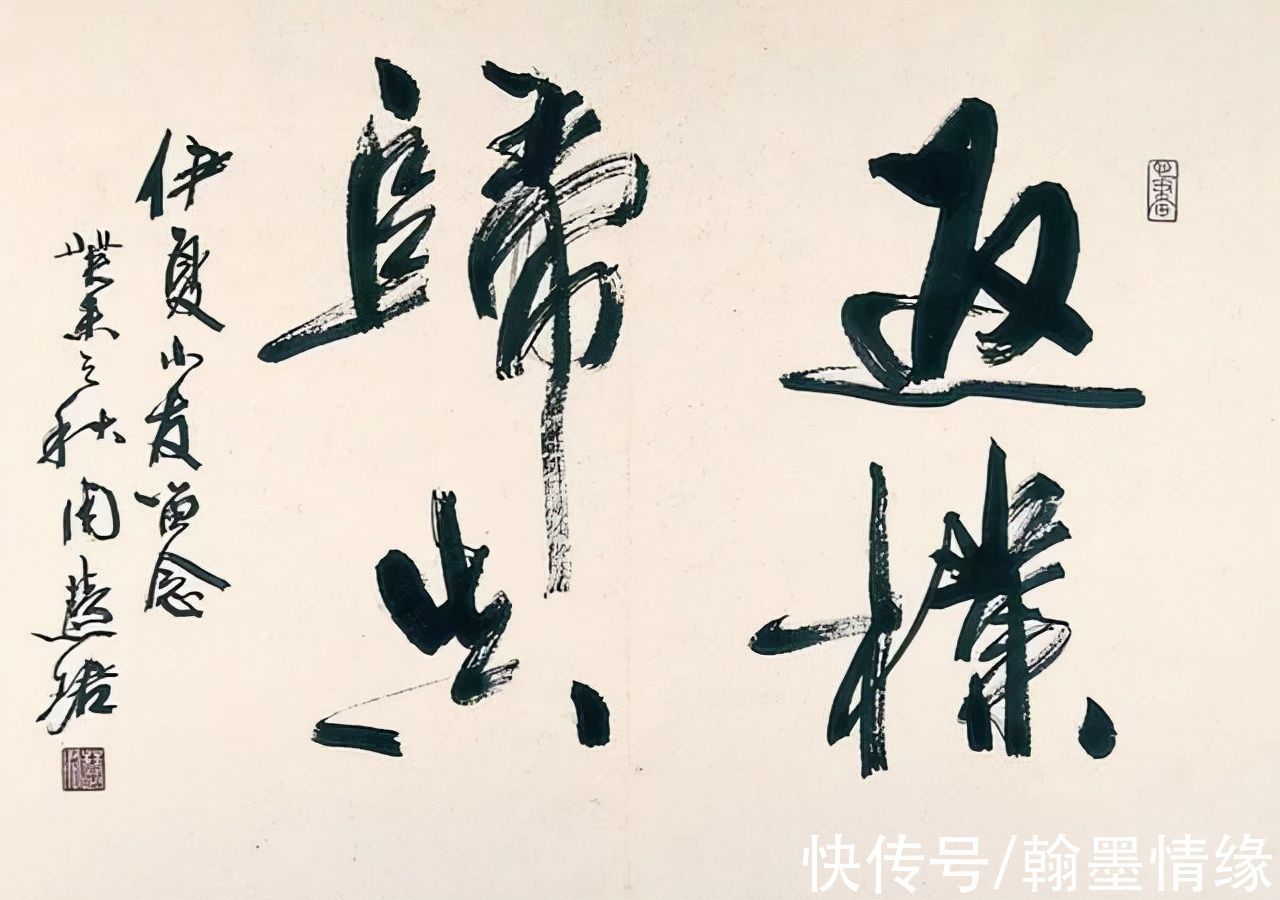 返樸
歸真
伊夏小友留念
癸未之秋周慧珺
快传号/翰墨情缘